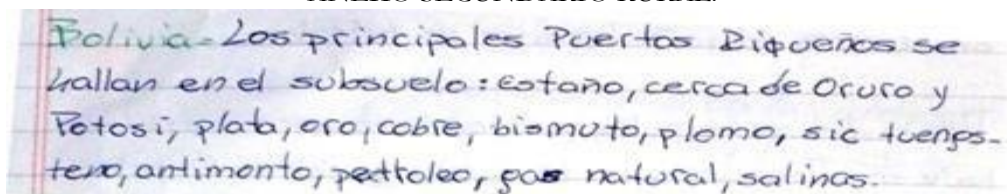 Bolivia = Los principales Puertas Riqueños se
hallan en el subsuelo: Estaño, cerca de Oruro y
Potosi, plata, oro, cobre, bismuto, plomo, sic tuengs-
teno, antimonto, pettroleo, gas natural, salinas.